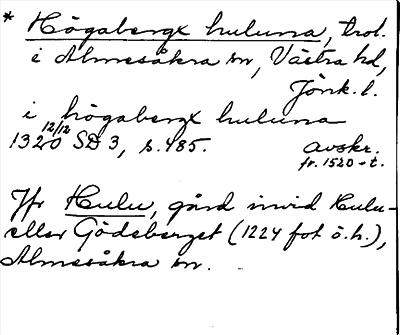 * Högabergx huluna, trol.
i Almesåkra sn, Västra hd,
Jönk. l.
i högabergx huluna
1320 12/12 SD 3, s. 485. avskr.
fr. 1520-t.
Jfr Hulu, gård invid Hulu-
eller Gödeberget (1224 fot ö.h.),
Almesåkra sn.